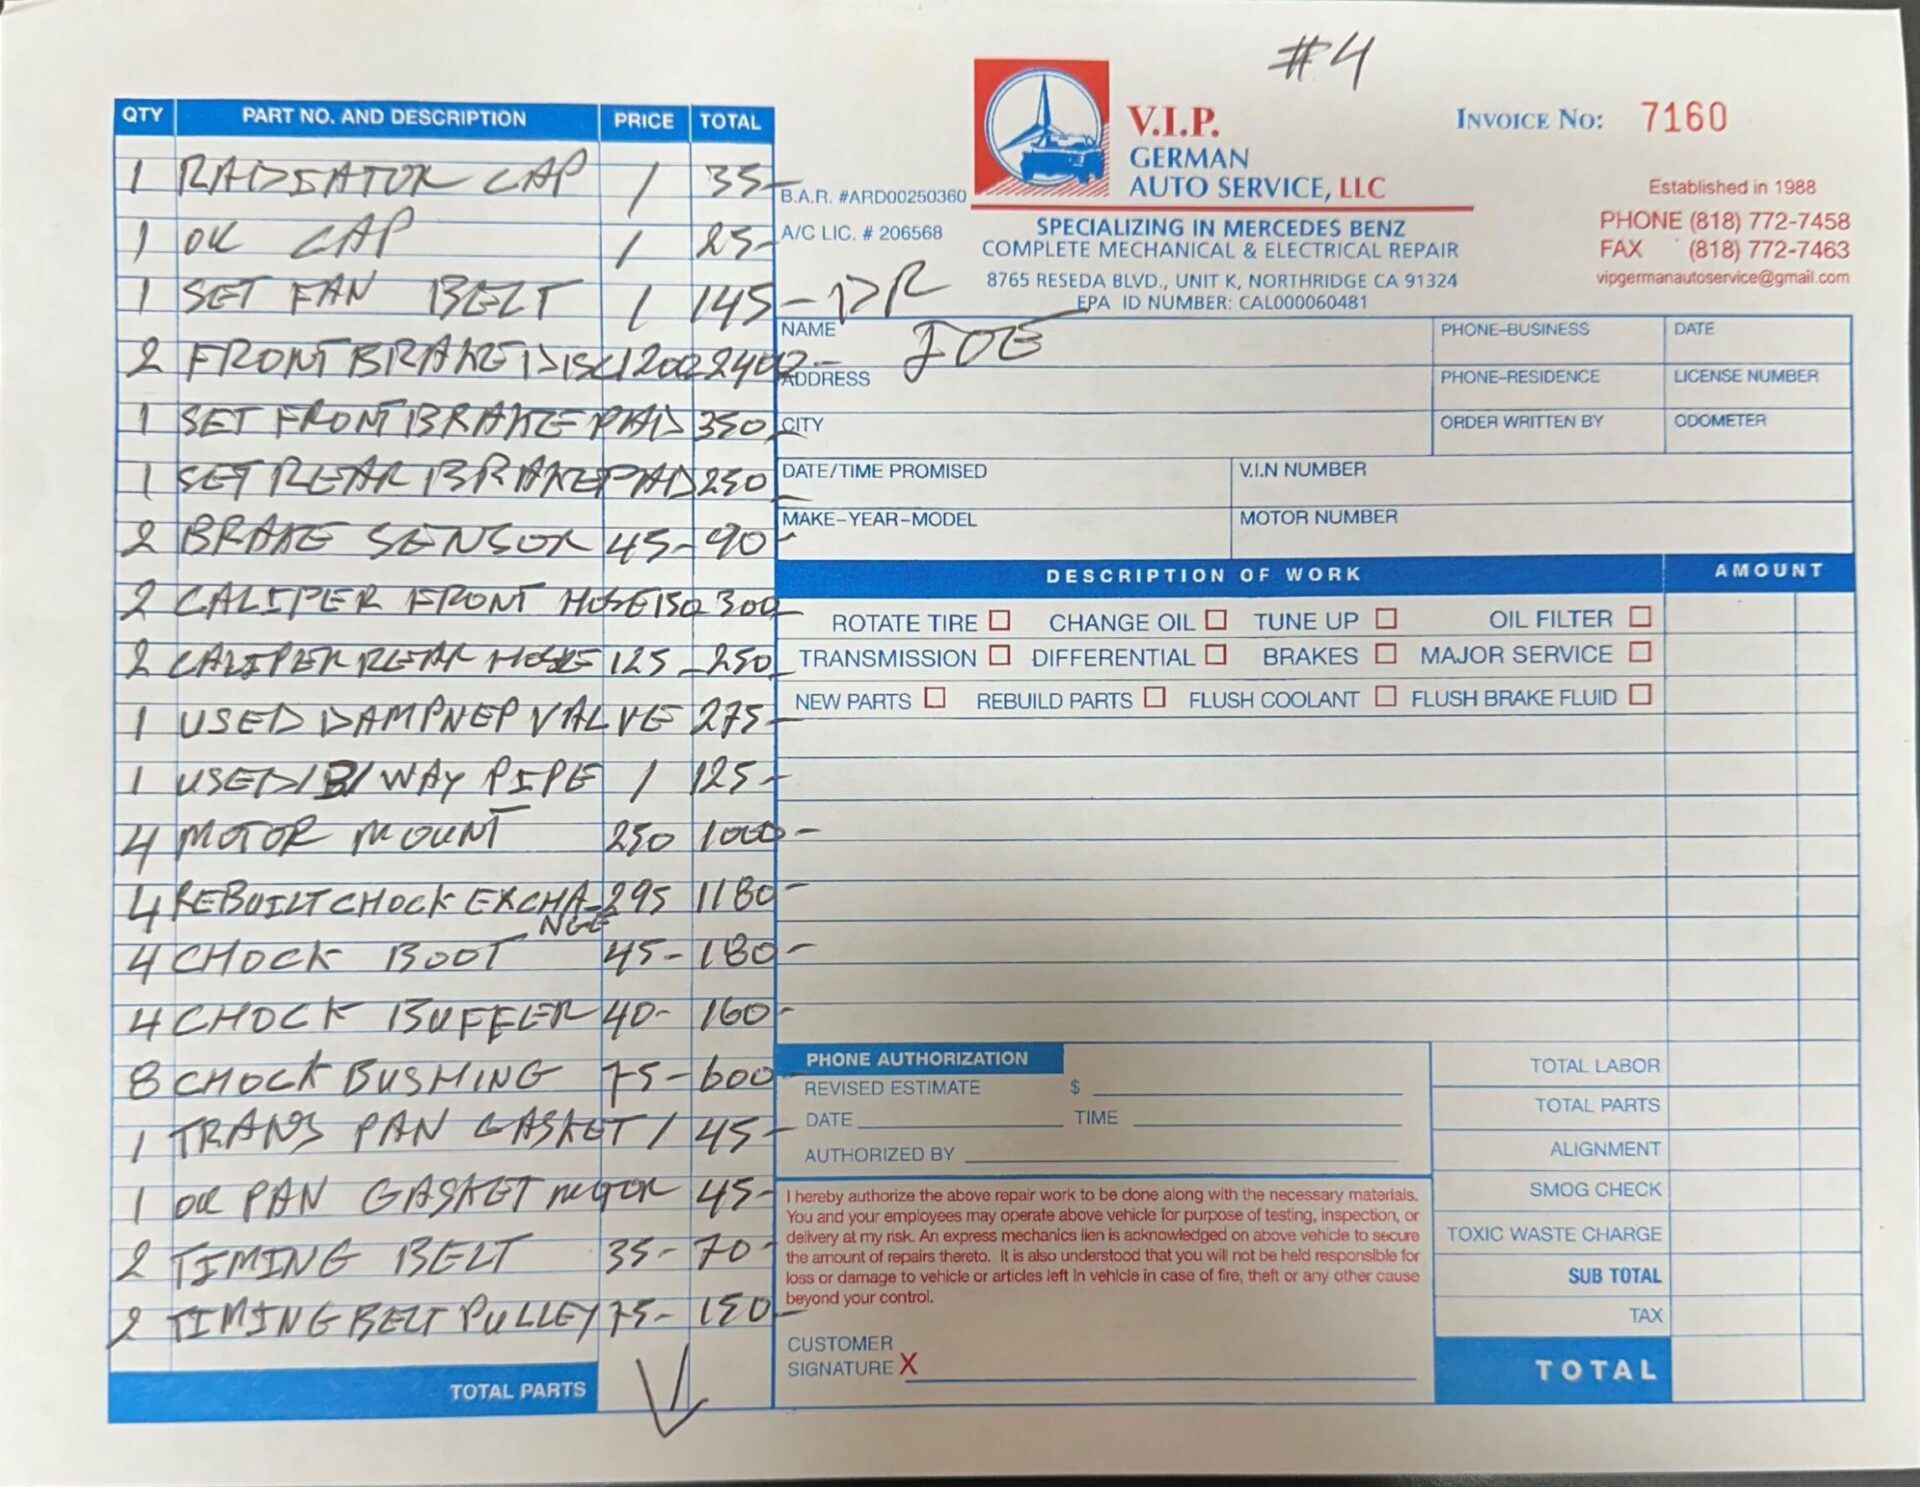 #4
QTY PART NO. AND DESCRIPTION PRICE TOTAL
1 RADIATOR CAP / 35-
1 OIL CAP / 25-
1 SET FAN BELT / 145-
2 FRONT BRAKE DISC 1200 2400-
1 SET FRONT BRAKE PAD 350-
1 SET REAR BRAKE PAD 250-
2 BRAKE SENSOR 45- 90-
2 CALIPER FRONT HOSE 150 300-
2 CALIPER REAR HOSE 125- 250-
1 USED DAMPNEP VALVE 275-
1 USED /B/ WAY PIPE / 125-
4 MOTOR MOUNT 250 1000-
4 REBUILT CHOCK EXCHA- 295 1180-
NGE
4 CHOCK BOOT 45- 180-
4 CHOCK BUFFER 40- 160-
8 CHOCK BUSHING 75- 600-
1 TRANS PAN GASKET / 45-
1 OIL PAN GASKET MOTOR 45-
2 TIMING BELT 35- 70-
2 TIMING BELT PULLEY 75- 150-
TOTAL PARTS
V.I.P.
GERMAN
AUTO SERVICE, LLC
INVOICE NO: 7160
Established in 1988
PHONE (818) 772-7458
FAX (818) 772-7463
vipgermanautoservice@gmail.com
B.A.R. #ARD00250360
A/C LIC. # 206568
SPECIALIZING IN MERCEDES BENZ
COMPLETE MECHANICAL & ELECTRICAL REPAIR
8765 RESEDA BLVD., UNIT K, NORTHRIDGE CA 91324
EPA ID NUMBER: CAL000060481
DR
JOE
NAME PHONE-BUSINESS DATE
ADDRESS PHONE-RESIDENCE LICENSE NUMBER
CITY ORDER WRITTEN BY ODOMETER
DATE/TIME PROMISED V.I.N NUMBER
MAKE-YEAR-MODEL MOTOR NUMBER
DESCRIPTION OF WORK AMOUNT
ROTATE TIRE CHANGE OIL TUNE UP OIL FILTER
TRANSMISSION DIFFERENTIAL BRAKES MAJOR SERVICE
NEW PARTS REBUILD PARTS FLUSH COOLANT FLUSH BRAKE FLUID
PHONE AUTHORIZATION
REVISED ESTIMATE $
DATE TIME
AUTHORIZED BY
I hereby authorize the above repair work to be done along with the necessary materials.
You and your employees may operate above vehicle for purpose of testing, inspection, or
delivery at my risk. An express mechanics lien is acknowledged on above vehicle to secure
the amount of repairs thereto. It is also understood that you will not be held responsible for
loss or damage to vehicle or articles left in vehicle in case of fire, theft or any other cause
beyond your control.
CUSTOMER
SIGNATURE X
TOTAL LABOR
TOTAL PARTS
ALIGNMENT
SMOG CHECK
TOXIC WASTE CHARGE
SUB TOTAL
TAX
TOTAL